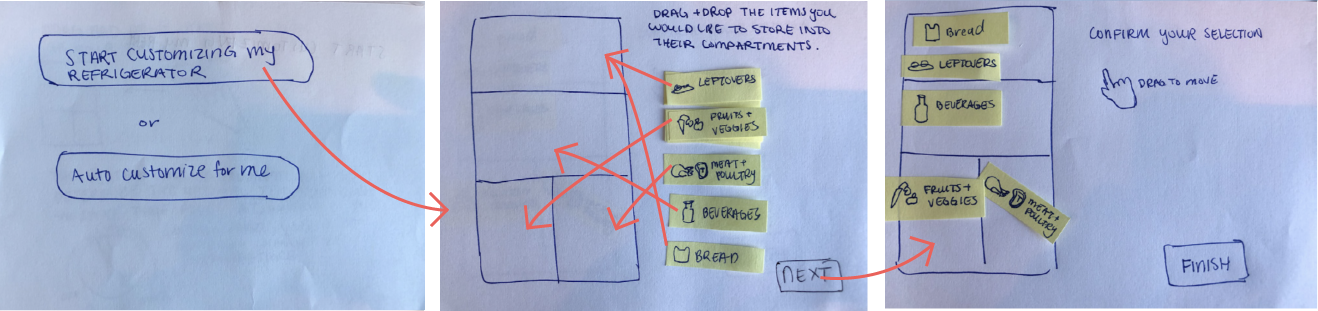 START CUSTOMIZING MY
REFRIGERATOR
or
Auto customize for me
DRAG + DROP THE ITEMS YOU
WOULD LIKE TO STORE INTO
THEIR COMPARTMENTS.
LEFTOVERS
FRUITS +
VEGGIES
MEAT +
POULTRY
BEVERAGES
BREAD
NEXT
Bread
LEFTOVERS
BEVERAGES
FRUITS +
VEGGIES
MEAT +
POULTRY
CONFIRM YOUR SELECTION
DRAG TO MOVE
FINISH